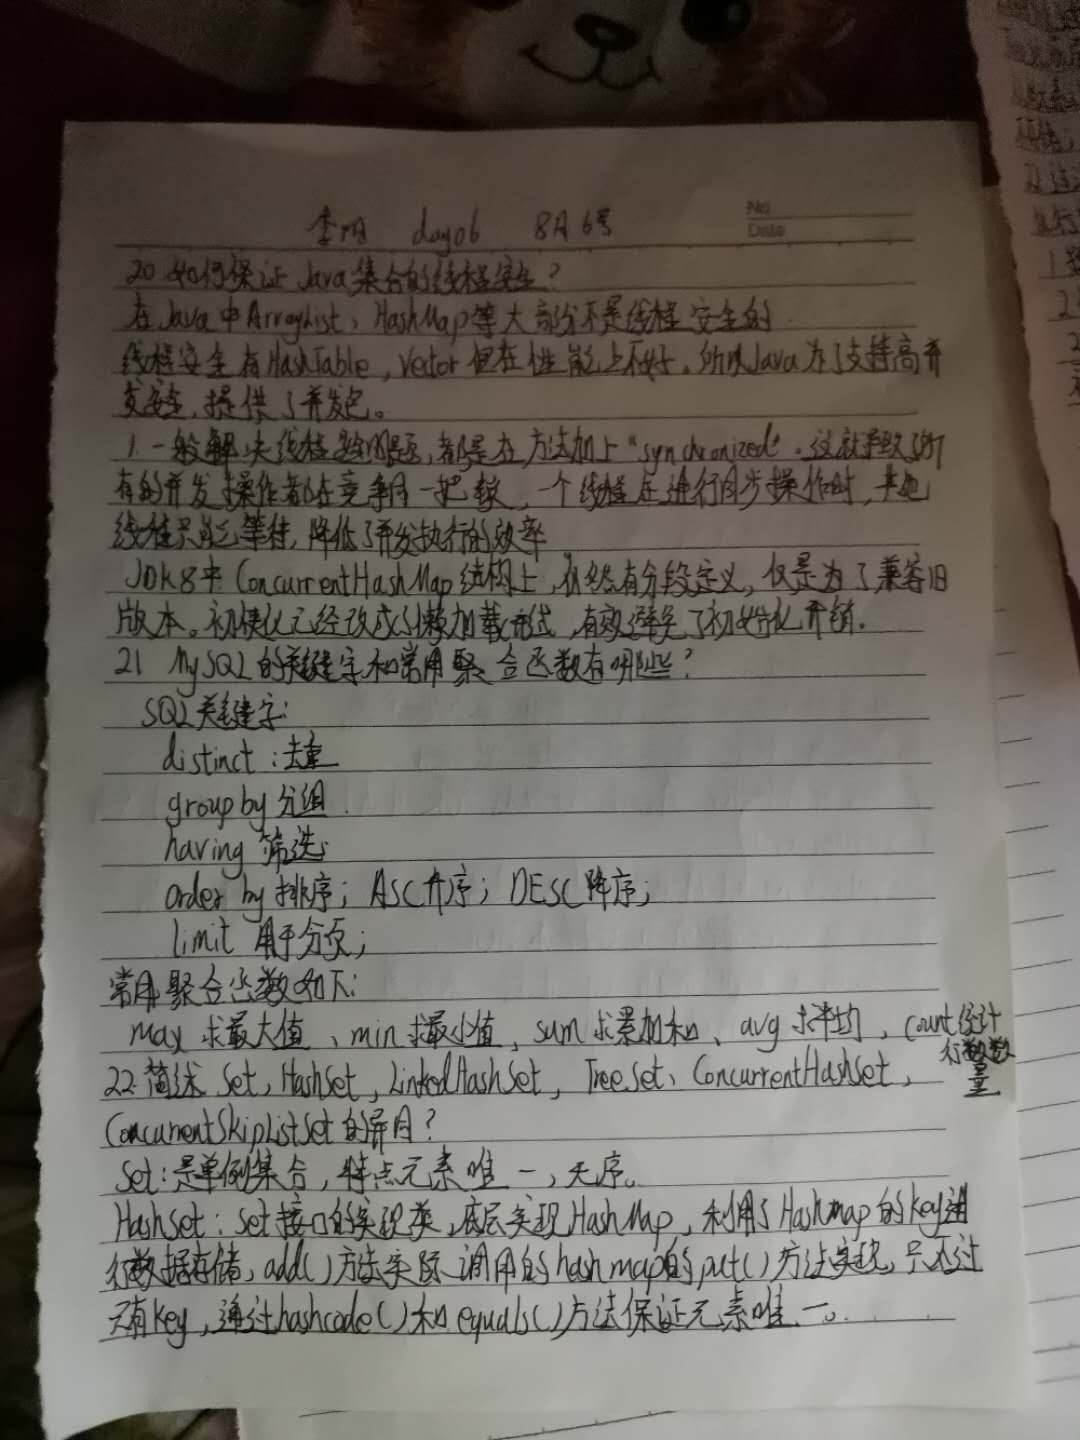 No
Date
李 day06 8月6号
20 如何保证Java集合的线程安全?
在Java中ArrayList、HashMap等大部分不是线程安全的
线程安全有HashTable,Vector但在性能上不好。所以Java为了支持高并
发安全,提供了并发包。
1.一般解决线程 问题,都是在方法加上"synchronized"。这就导致了所
有的并发操作者都在竞争同一把锁,一个线程在进行同步操作时,其他
线程只能等待,降低了并发执行的效率
JDK8中ConcurrentHashMap结构上,仍然有分段定义,仅是为了兼容旧
版本。初 化已经改成了懒加载形式,有效避免了初始化开销.
21 MySQL的关键字和常用聚合函数有哪些?
SQL关键字:
distinct:去重
group by 分组
having 筛选
order by 排序; ASC升序; DESC降序;
limit 用于分页;
常用聚合函数如下:
max 求最大值、min求最小值、sum求累加和、avg求平均,count统计
行数数量
22.简述Set,HashSet,LinkedHashSet,TreeSet、ConcurrentHashSet,
ConcurrentSkipListSet的异同?
Set:是单例集合,特点元素唯一,无序。
HashSet:Set接口的实现类,底层实现HashMap,利用了Hashmap的key进
行数据存储,add()方法实际调用的hashmap的put()方法实现,只不过
只有key,通过hashcode()和equals()方法保证元素唯一。